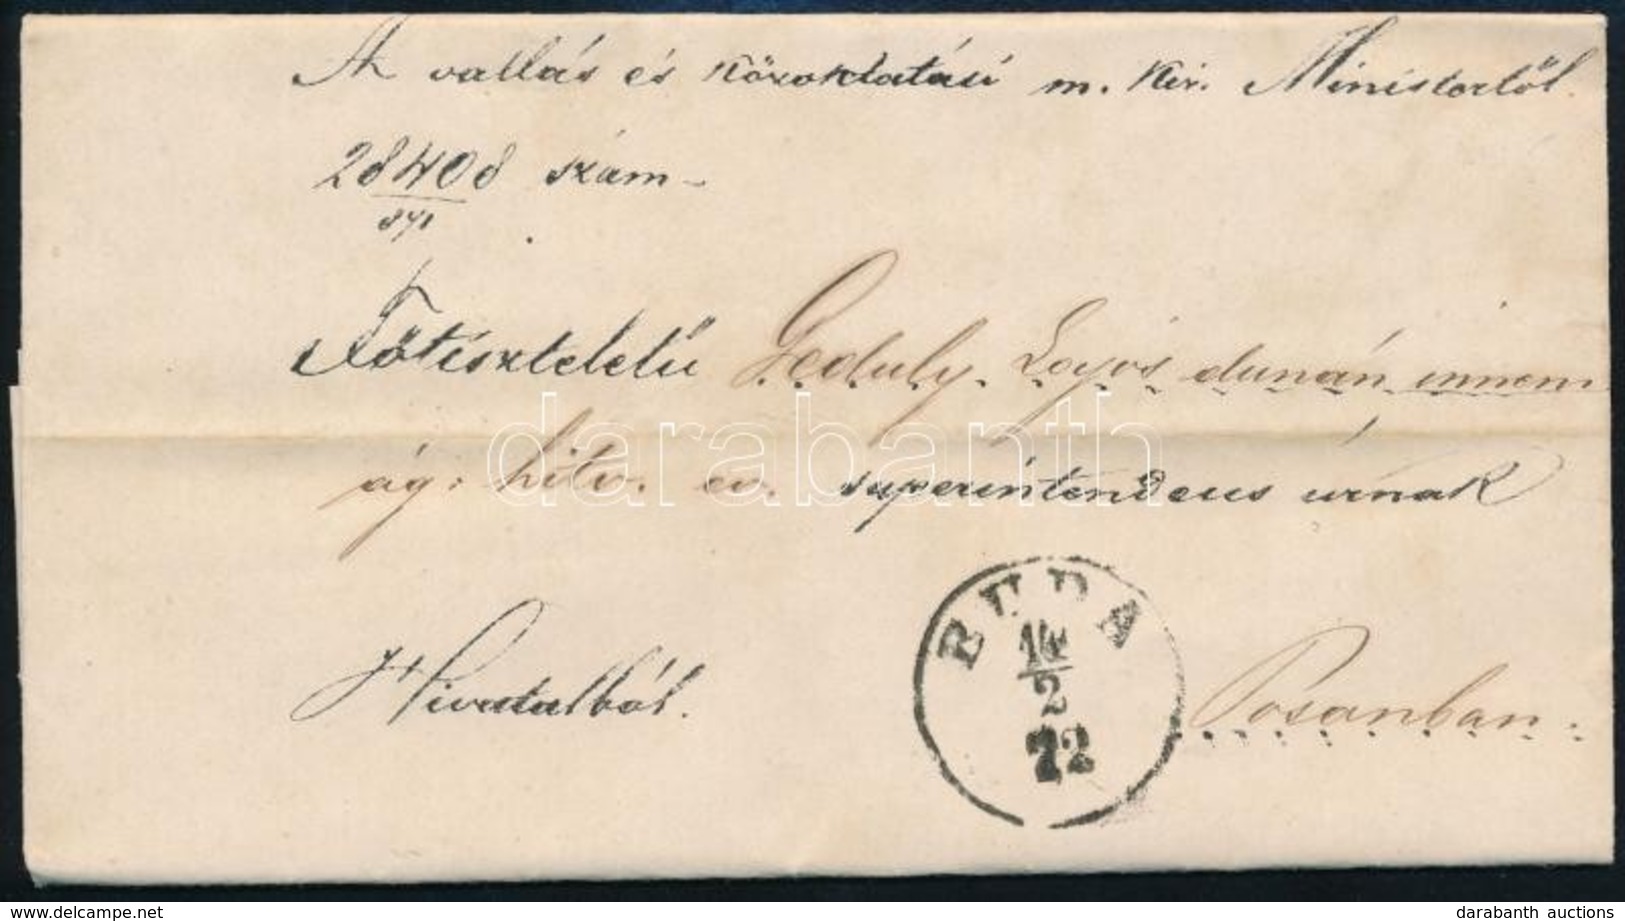 A vallás és közoktatási m. kir. Ministertől.
28408 szám-
871
Főtiszteletű Geduly Lajos dunán innen
ág: hitv. ev. superintendens úrnak
Hivatalból.
BUDA
14
2
72
Posonban.
darabanth
delcampe.net
darabanth auctions